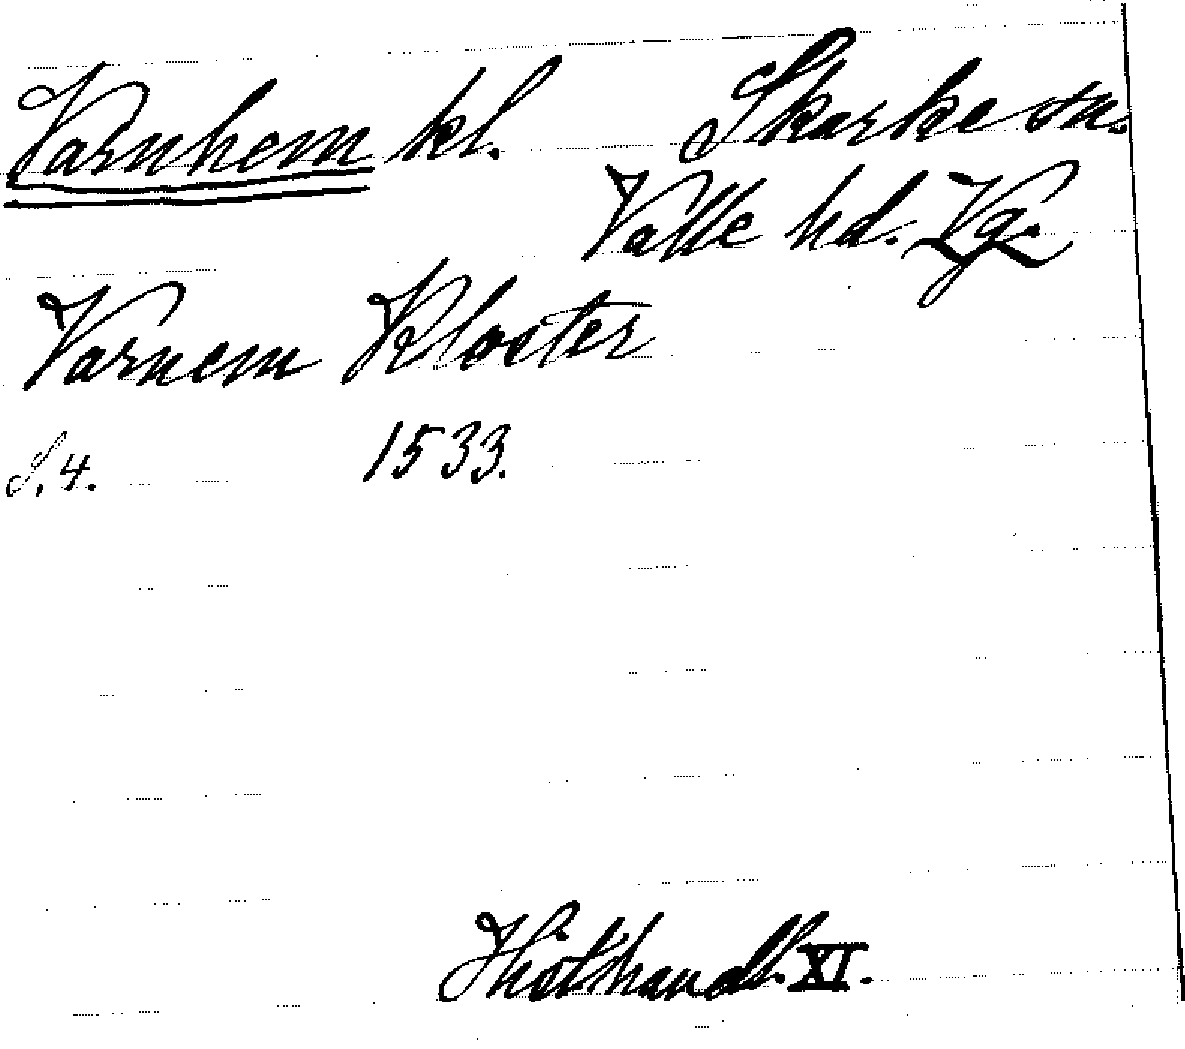 Varnhem kl. Skarke sn.
Valle hd. Vg.
Varnem Kloster
S. 4. 1533.
Histhandl. XI.